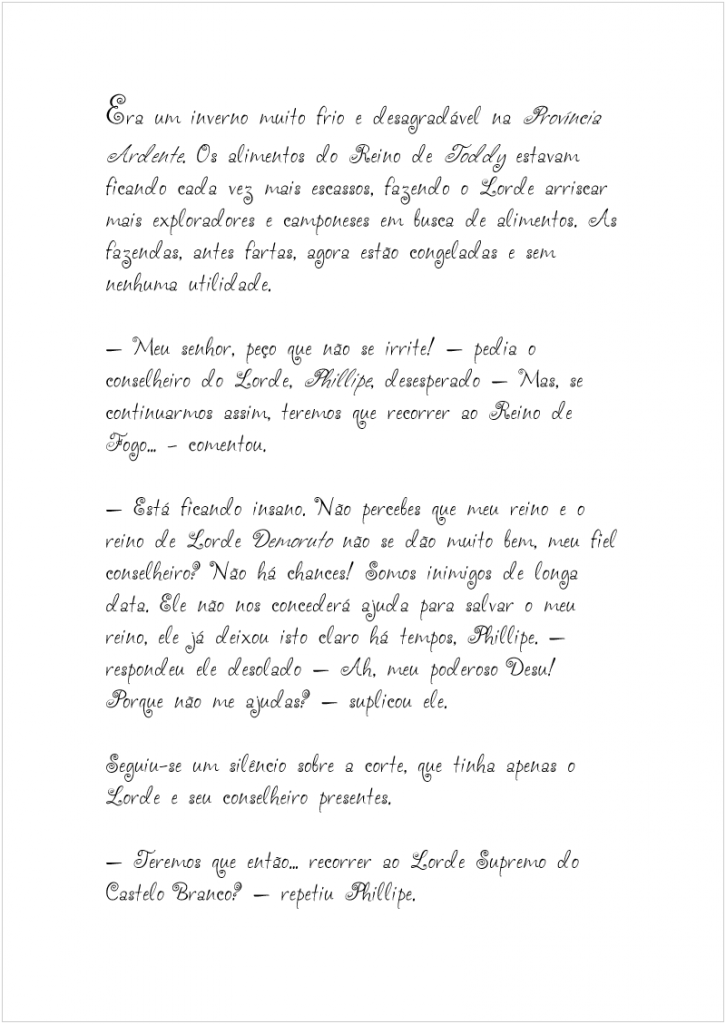 Era um inverno muito frio e desagradável na Província
Ardente. Os alimentos do Reino de Toddy estavam
ficando cada vez mais escassos, fazendo o Lorde arriscar
mais exploradores e camponeses em busca de alimentos. As
fazendas, antes fartas, agora estão congeladas e sem
nenhuma utilidade.
— Meu senhor, peço que não se irrite! — pedia o
conselheiro do Lorde, Phillipe, desesperado — Mas, se
continuarmos assim, teremos que recorrer ao Reino de
Fogo... - comentou.
— Está ficando insano. Não percebes que meu reino e o
reino de Lorde Demoruto não se dão muito bem, meu fiel
conselheiro? Não há chances! Somos inimigos de longa
data. Ele não nos concederá ajuda para salvar o meu
reino, ele já deixou isto claro há tempos, Phillipe. —
respondeu ele desolado — Ah, meu poderoso Desu!
Porque não me ajudas? — suplicou ele.
Seguiu-se um silêncio sobre a corte, que tinha apenas o
Lorde e seu conselheiro presentes.
— Teremos que então... recorrer ao Lorde Supremo do
Castelo Branco? — repetiu Phillipe.